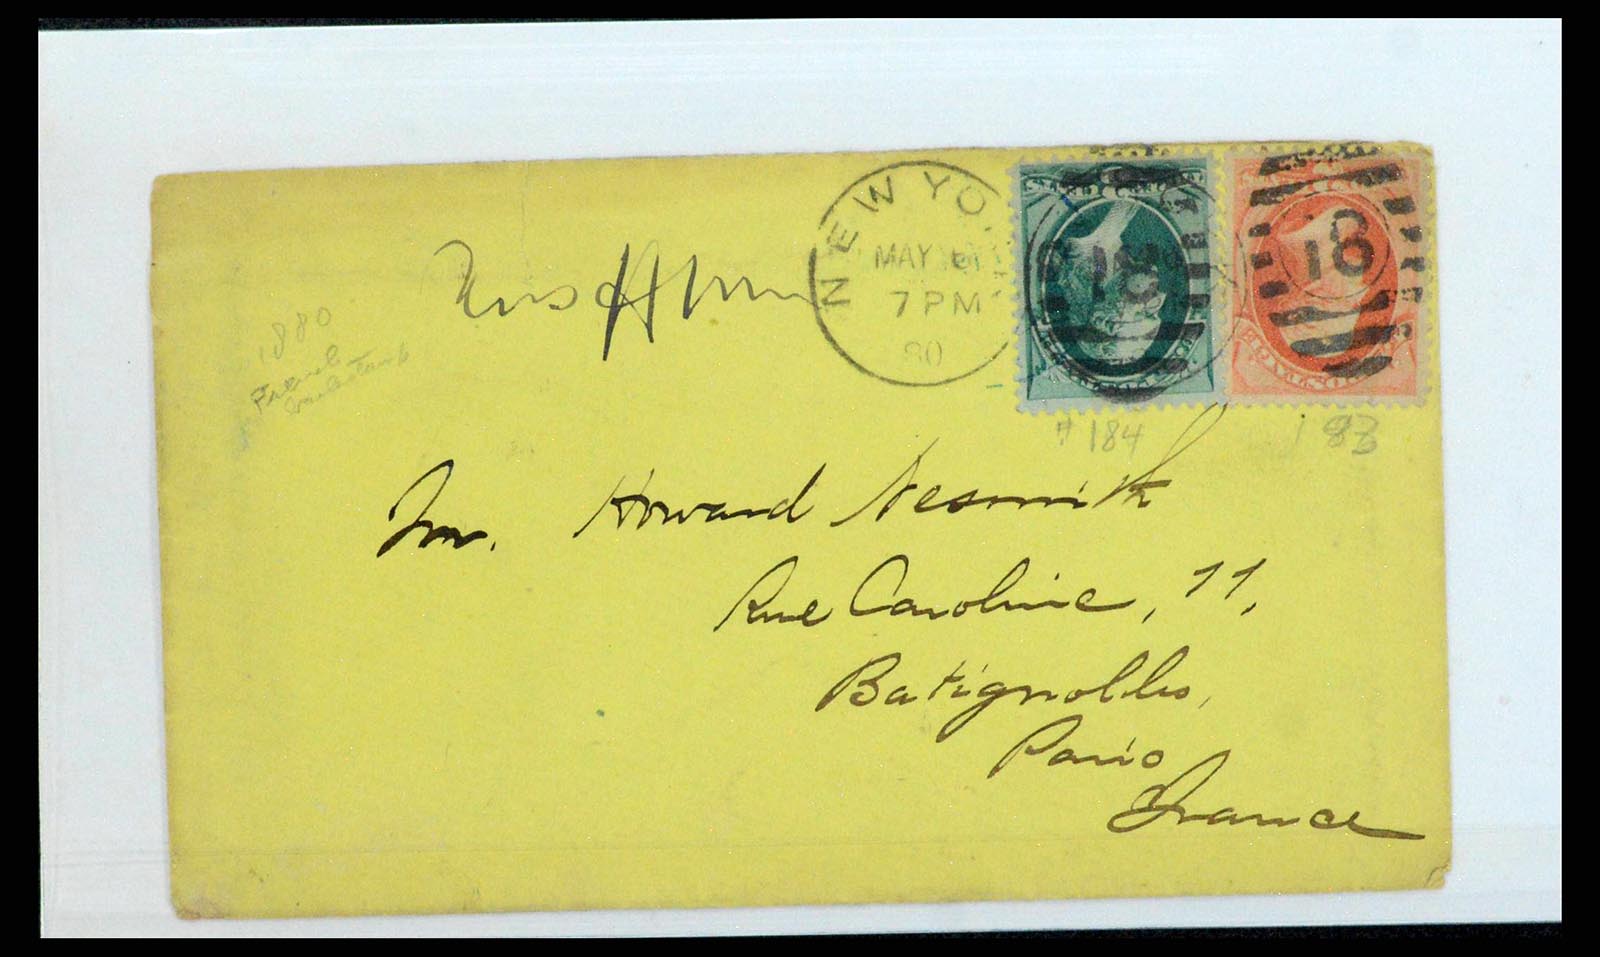 NEW YO
MAY
7 PM
80
18
18
1880
French
# 184
183
Mr. Howard Nesmith
Rue Caroline, 11,
Batignolles,
Paris
France